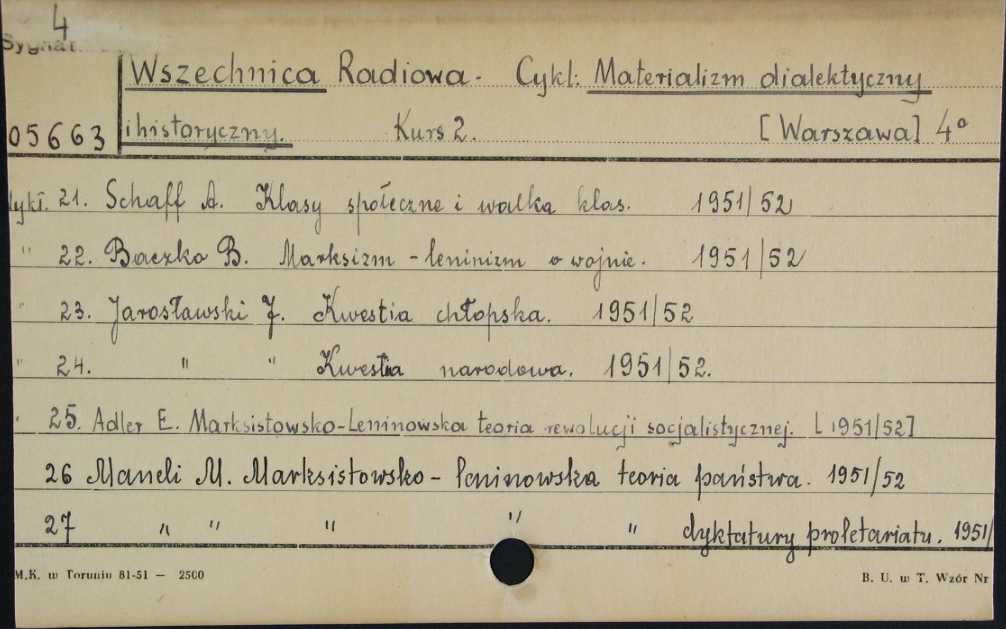 4
Sygnat.
Wszechnica Radiowa. Cykl: Materializm dialektyczny
05663 i historyczny. Kurs 2. [Warszawa] 4°
Wykł. 21. Schaff A. Klasy społeczne i walka klas. 1951/52
" 22. Baczko B. Marksizm - leninizm o wojnie. 1951/52
" 23. Jarosławski J. Kwestia chłopska. 1951/52
" 24. " " Kwestia narodowa. 1951/52.
" 25. Adler E. Marksistowsko-Leninowska teoria rewolucji socjalistycznej. [1951/52]
26 Maneli M. Marksistowsko-leninowska teoria państwa. 1951/52
27 " " " " " dyktatury proletariatu. 1951/
M.K. w Toruniu 81-51 — 2500
B. U. w T. Wzór Nr